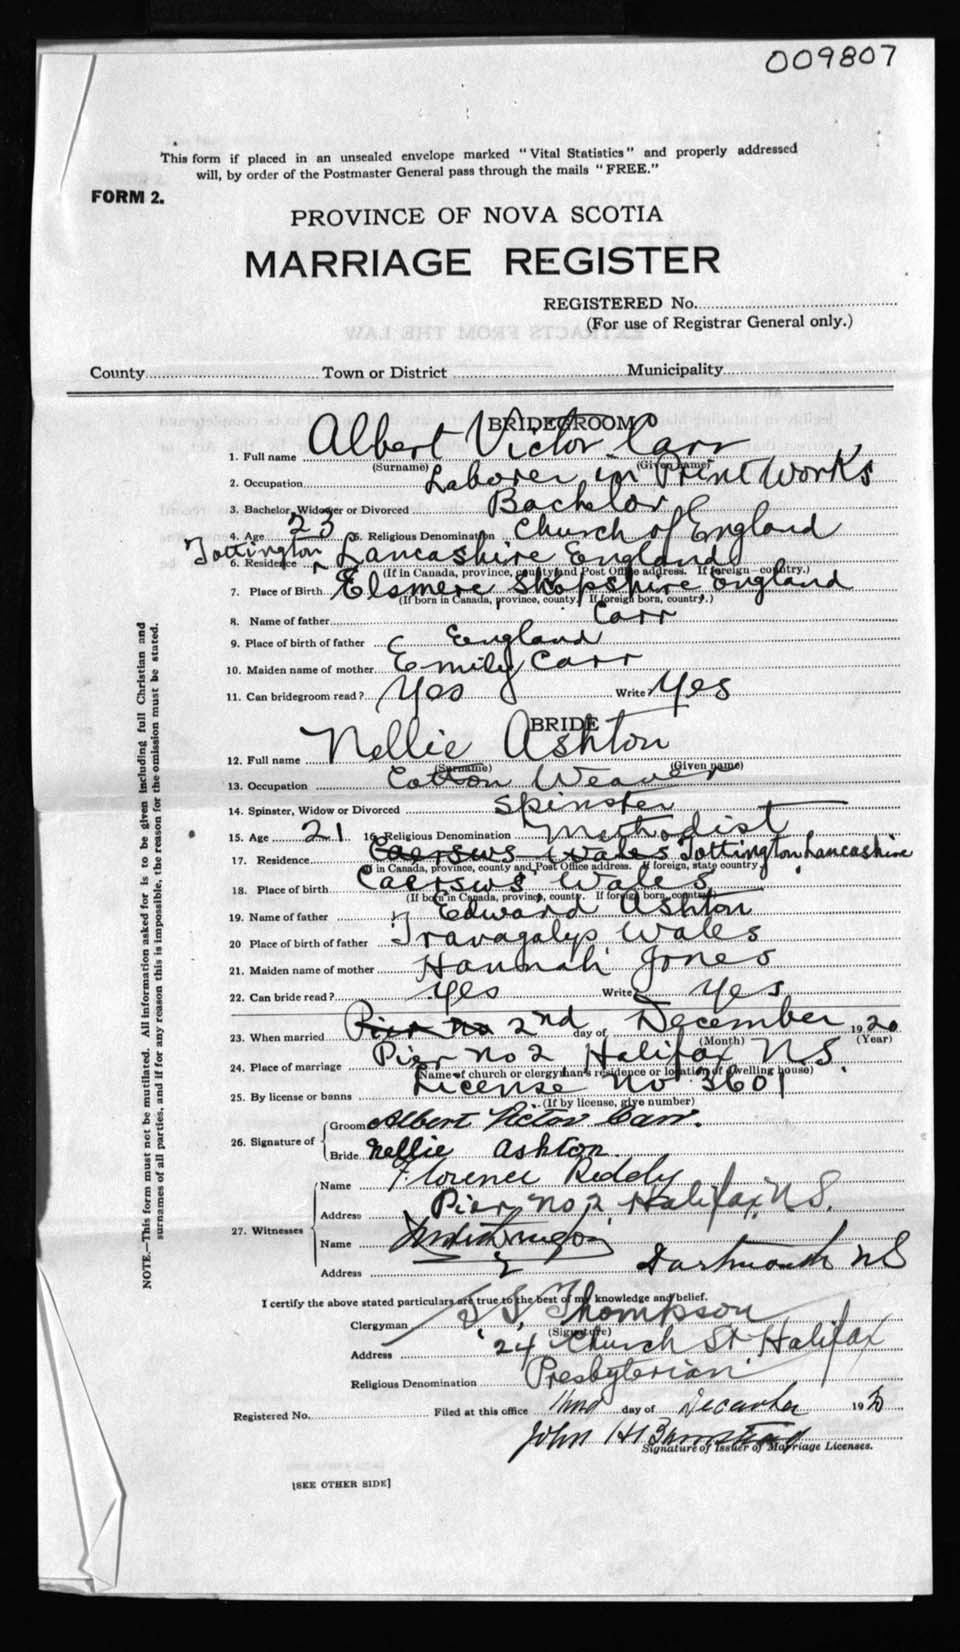 009807
This form if placed in an unsealed envelope marked "Vital Statistics" and properly addressed
will, by order of the Postmaster General pass through the mails "FREE."
FORM 2.
PROVINCE OF NOVA SCOTIA
MARRIAGE REGISTER
REGISTERED No.
(For use of Registrar General only.)
EXTRACTS FROM THE LAW
County Town or District Municipality
BRIDEGROOM
1. Full name Albert Victor Carr
(Surname) (Given name)
2. Occupation Laborer in Print Works
3. Bachelor, Widower or Divorced Bachelor
4. Age 23 5. Religious Denomination Church of England
6. Residence Tottington Lancashire England
(If in Canada, province, county and Post Office address. If foreign—country.)
7. Place of Birth Elsmere Shopshire England
(If born in Canada, province, county. If foreign born, country.)
8. Name of father Carr
9. Place of birth of father England
10. Maiden name of mother Emily Carr
11. Can bridegroom read? Yes Write? Yes
BRIDE
12. Full name Nellie Ashton
(Surname) (Given name)
13. Occupation Cotton Weaver
14. Spinster, Widow or Divorced Spinster
15. Age 21 16. Religious Denomination Methodist
17. Residence Caersws Wales Tottington Lancashire
(If in Canada, province, county and Post Office address. If foreign, state country.)
18. Place of birth Caersws Wales
(If born in Canada, province, county. If foreign born, country.)
19. Name of father Edward Ashton
20 Place of birth of father Travagalyp, Wales
21. Maiden name of mother Hannah Jones
22. Can bride read? Yes Write? Yes
23. When married Pier No 2nd day of December 1920
(Month) (Year)
24. Place of marriage Pier No 2 Halifax N.S.
(Name of church or clergyman's residence or location of dwelling house)
25. By license or banns License No 3601
(If by license, give number)
26. Signature of Groom Albert Victor Carr.
Bride Nellie Ashton
27. Witnesses Name Florence Reddy
Address Pier No 2 Halifax, N.S.
Name
Address Dartmouth N S
I certify the above stated particulars are true to the best of my knowledge and belief.
Clergyman Thompson
(Signature)
Address 24 Church St Halifax
Religious Denomination Presbyterian
Registered No. Filed at this office day of December 1920
John H
Signature of Issuer of Marriage Licenses.
[SEE OTHER SIDE]
NOTE.—This form must not be mutilated. All information asked for is to be given including full Christian and
surnames of all parties, and if for any reason this is impossible, the reason for the omission must be stated.